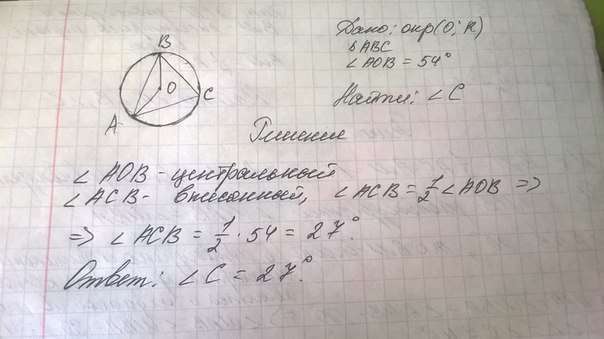 Дано: окр(О; R)
△ABC
∠AOB = 54°
Найти: ∠C
B
O
C
A
Решение
∠AOB - центральный
∠ACB - вписанный, ∠ACB = 1/2 ∠AOB =>
=> ∠ACB = 1/2 · 54 = 27°.
Ответ: ∠C = 27°.